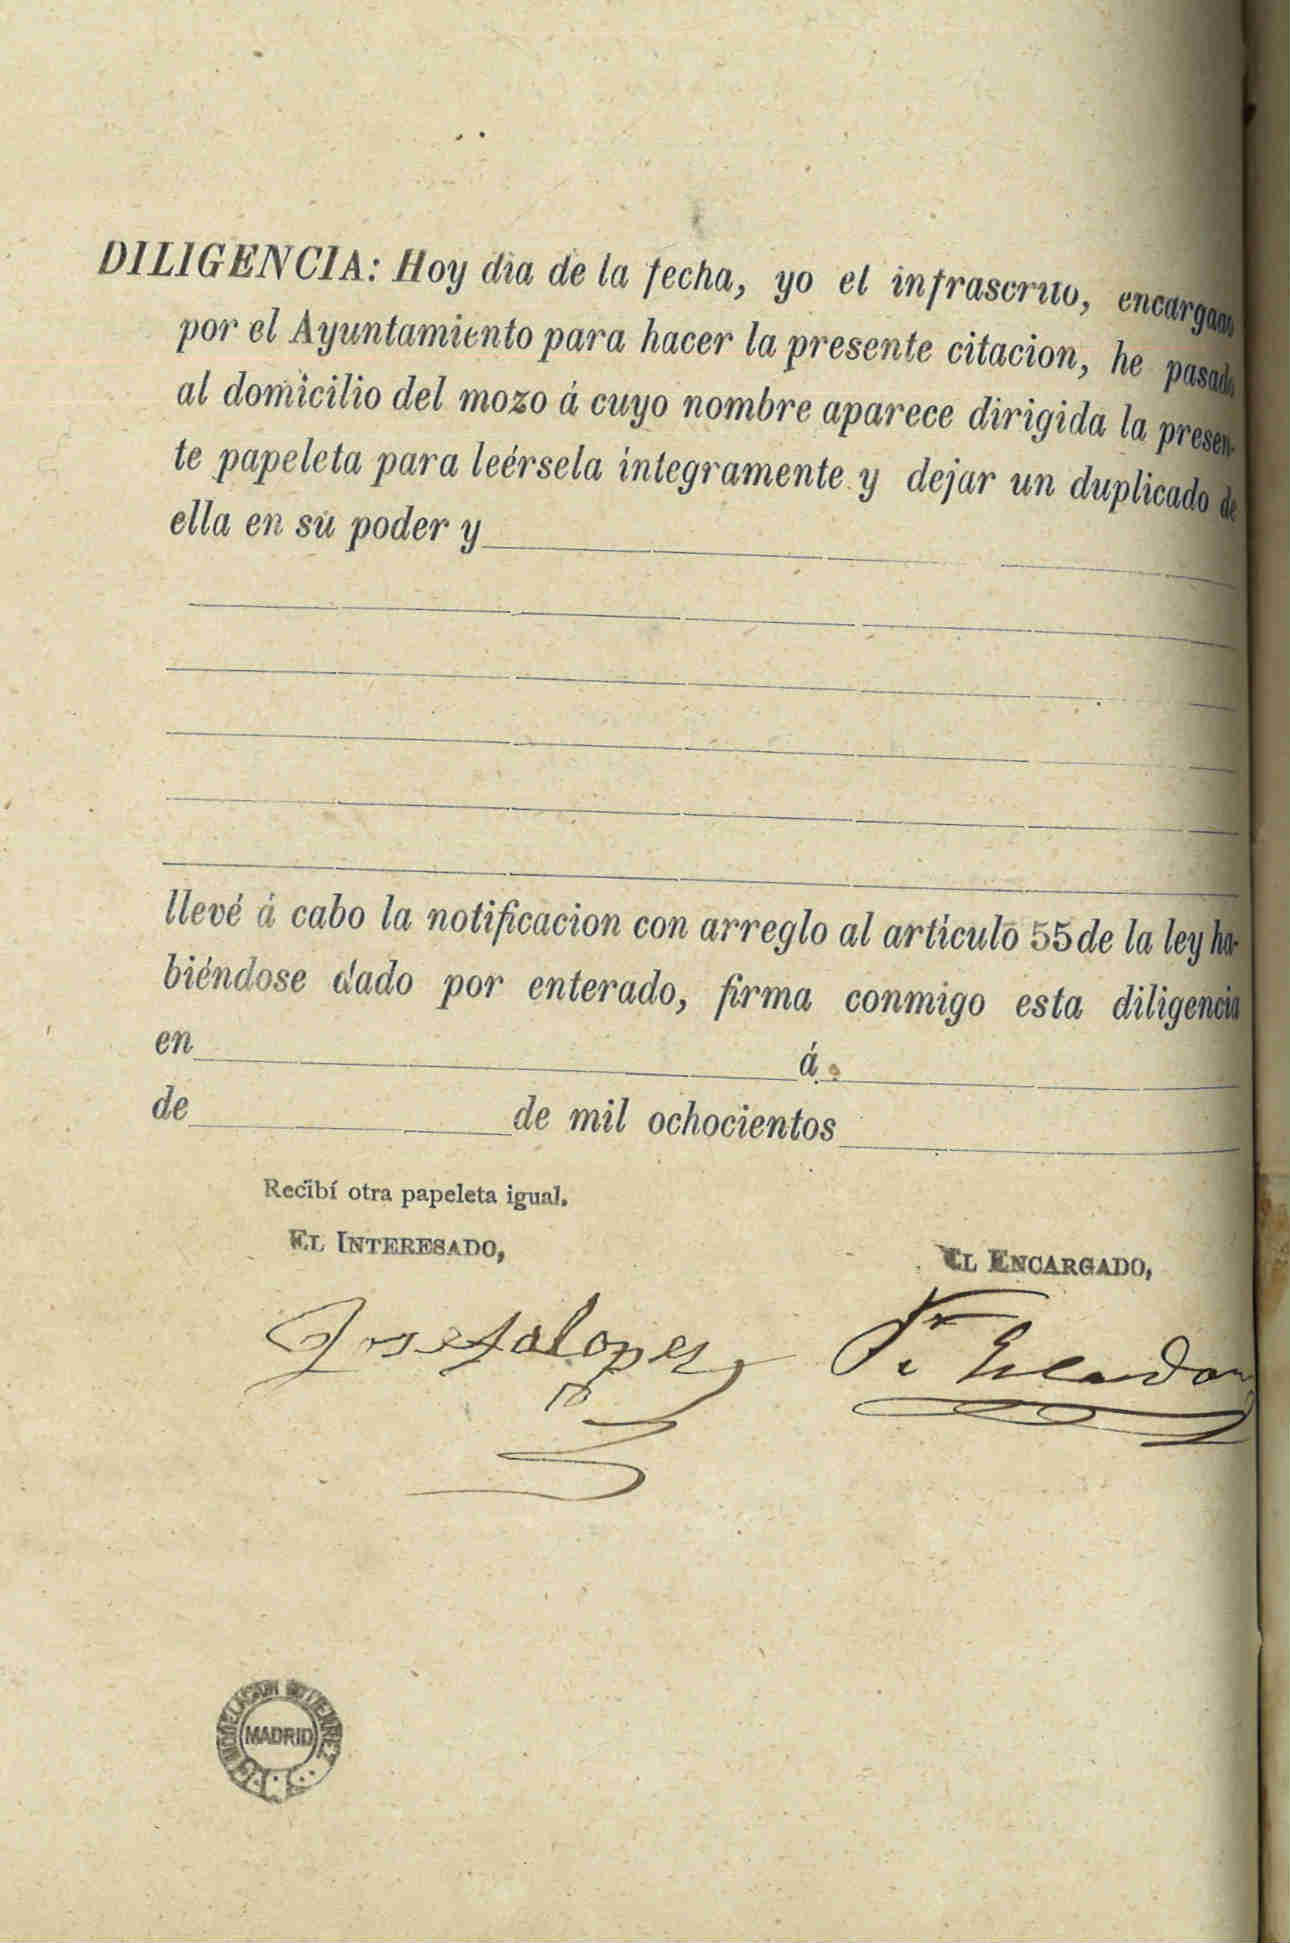 DILIGENCIA: Hoy dia de la fecha, yo el infrascrito, encargado
por el Ayuntamiento para hacer la presente citacion, he pasado
al domicilio del mozo á cuyo nombre aparece dirigida la presen-
te papeleta para leérsela íntegramente y dejar un duplicado de
ella en su poder y
llevé á cabo la notificacion con arreglo al artículo 55 de la ley ha-
biéndose dado por enterado, firma conmigo esta diligencia
en á
de de mil ochocientos
Recibí otra papeleta igual.
EL INTERESADO,
EL ENCARGADO,
Josefa Lopez
MODELACION
MADRID